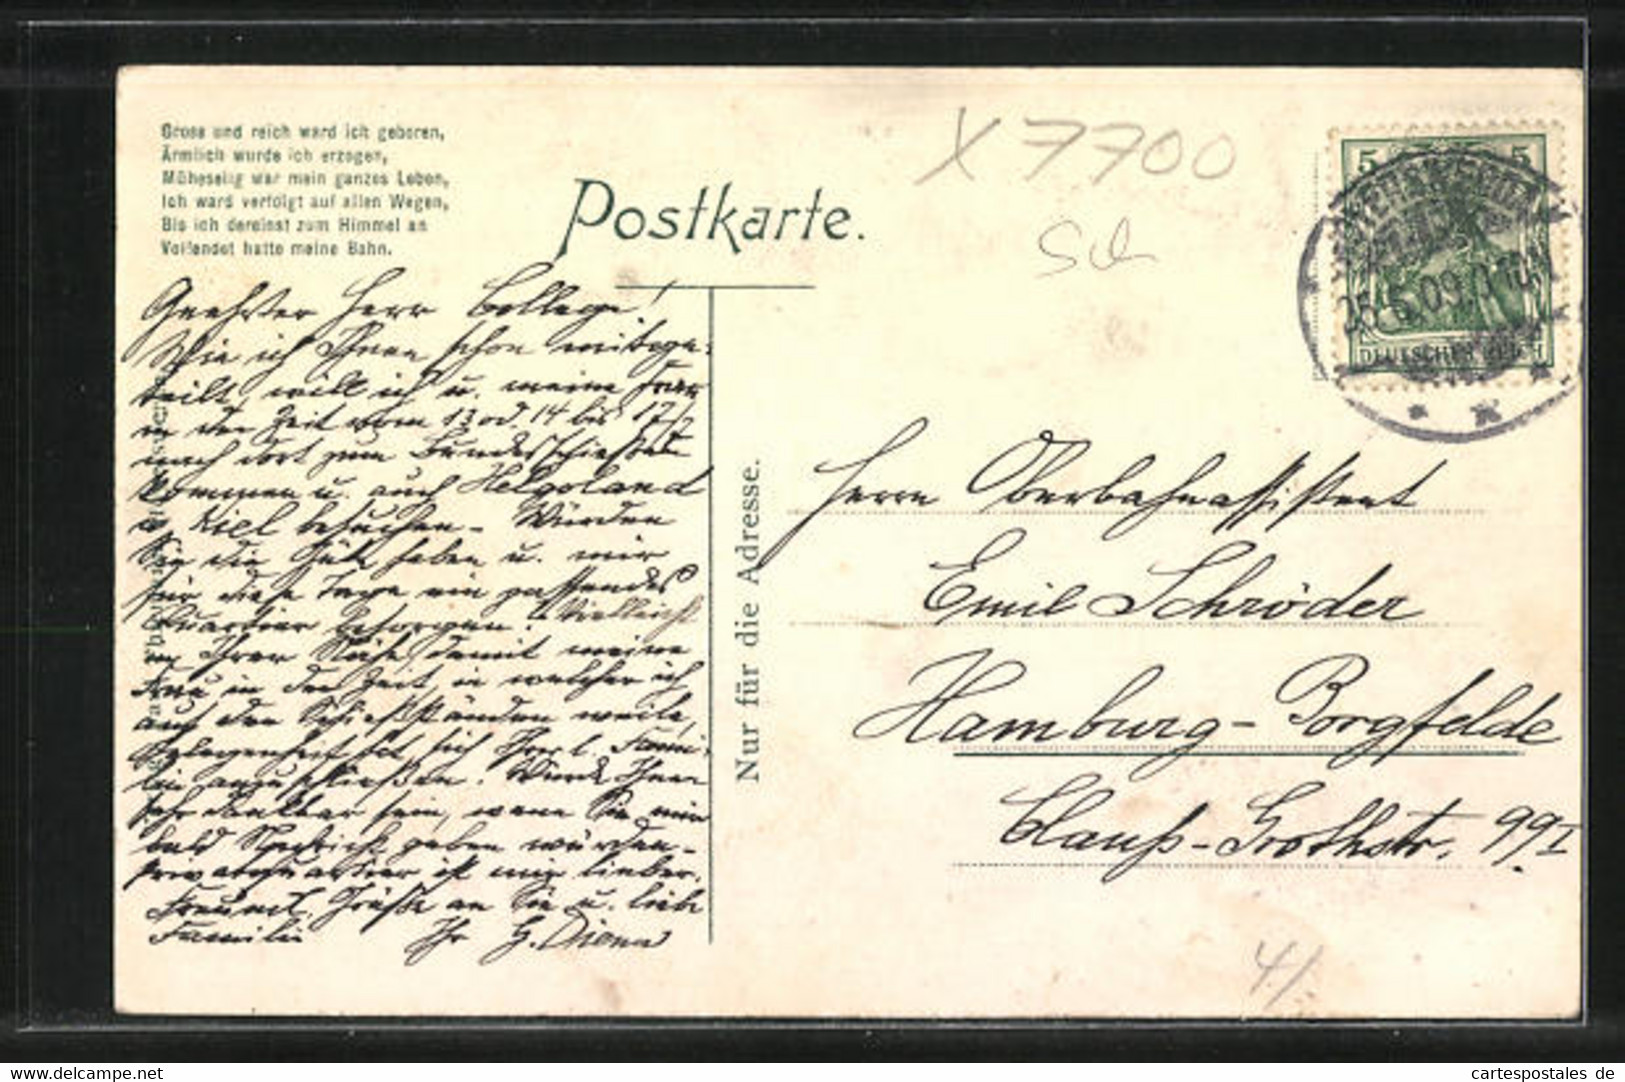 Gross und reich ward ich geboren,
Ärmlich wurde ich erzogen,
Müheselig war mein ganzes Leben,
Ich ward verfolgt auf allen Wegen,
Bis ich dereinst zum Himmel an
Vollendet hatte meine Bahn.
Postkarte.
X 7700
Sch
5 5
25.5.09.
DEUTSCHES REICH
Geehrter Herr College!
Wie ich Ihnen schon mitge-
teilt, will ich u. meine Frau
in der Zeit vom 13 od. 14 bis 17/7
nach dort zum Bundesschießen
kommen u. auch Helgoland
u. Kiel besuchen – Würden
Sie die Güte haben u. mir
für diese Tage ein passendes
Quartier besorgen. Vielleicht
in Ihrer Nähe damit meine
Frau in der Zeit, in welcher ich
auf den Schießständen weile,
Gelegenheit hat, sich Ihrer l. Fami-
lie anzuschließen. Würde Ihnen
sehr dankbar sein, wenn Sie mir
bald Nachricht geben würden –
Privatquartier ist mir lieber.
Freundl. Grüße an Sie u. liebe
Familie Ihr G.
Nur für die Adresse.
Herrn Oberbahnassistent
Emil Schröder
Hamburg-Borgfelde
Clauß-Grothstr. 99I
4/
cartespostales de